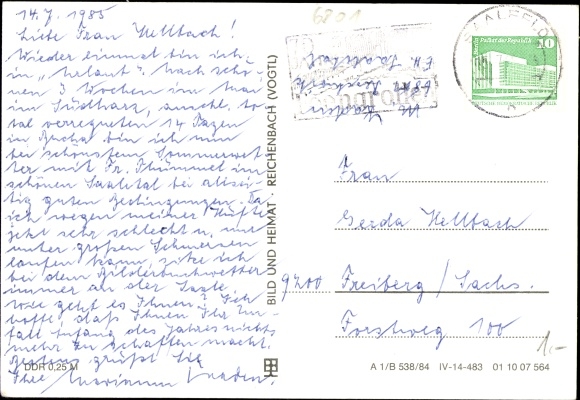 14.7.1985
Liebe Frau Hellbach!
Wieder einmal bin ich
in „ ". Nach schö-
nen 3 Wochen im Mai
im Südharz, anschl. to-
tal verregneten 14 Tagen
in Bucha bin ich nun
bei schönstem Sommerwet-
ter mit Fr. Thümmel im
schönen Saaletal bei allsei-
tig guten Bedingungen. Da
ich wegen meiner Hüfte
jetzt sehr schlecht u. nur
unter großen Schmerzen
laufen kann, sitze ich
bei dem Bilderbuchwetter
immer an der Saale.
Wie geht es Ihnen? Ich
hoffe, daß Ihnen Ihr Un-
fall Anfang des Jahres nichts
mehr zu schaffen macht.
Bestens grüßt Sie
Ihre Marianne
DDR 0,25 M
BILD UND HEIMAT · REICHENBACH (VOGTL)
6801
SAALFELD
Palast der Republik
10
DEUTSCHE DEMOKRATISCHE REPUBLIK
Frau
Gerda Hellbach
9200 Freiberg/Sachs.
Forstweg 100
1,-
A 1/B 538/84 IV-14-483 01 10 07 564